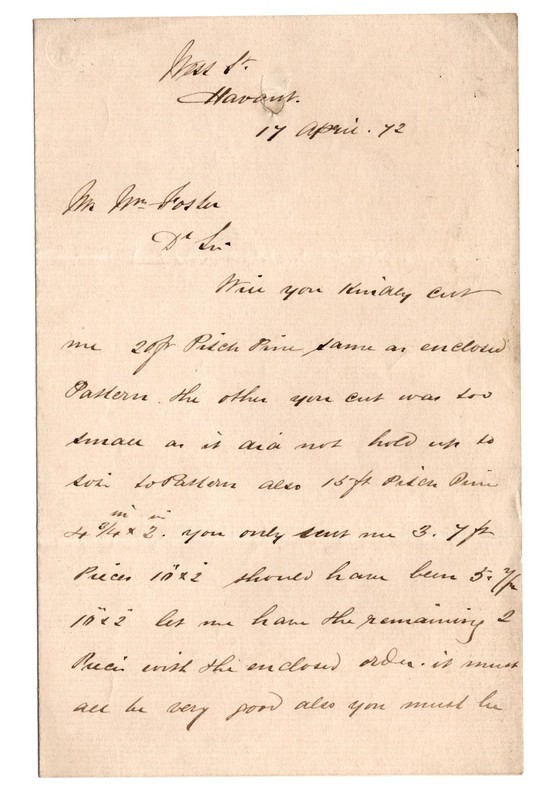 West St.
Havant.
17 April. 72
Mr Wm Foster
Dr Sir
Will you Kindly cut
me 20ft Pitch Pine same as enclosed
Pattern. the other you cut was too
small as it did not hold up to
to Pattern also 15ft Pitch Pine
in in
4 × 2. you only sent me 3. 7 ft
Pieces 11" × 2 should have been 5. 7/ft
11" × 2 let me have the remaining 2
Pieces with the enclosed order. it must
all be very good also you must be